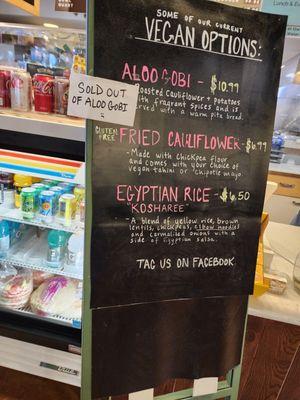 SOME OF OUR CURRENT
VEGAN OPTIONS:
ALOO GOBI - $10.99
Roasted Cauliflower + potatoes
with fragrant spices and is
served with a warm pita bread.
SOLD OUT
OF ALOO GOBI
GLUTEN
FREE
FRIED CAULIFLOWER - $6.99
- Made with chickpea flour
and comes with your choice of
vegan tahini or chipotle mayo
EGYPTIAN RICE - $6.50
"KOSHAREE"
- A blend of yellow rice, brown
lentils, chickpeas, elbow noodles
and carmalized onions with a
side of Egyptian salsa.
TAG US ON FACEBOOK.
Lunch &